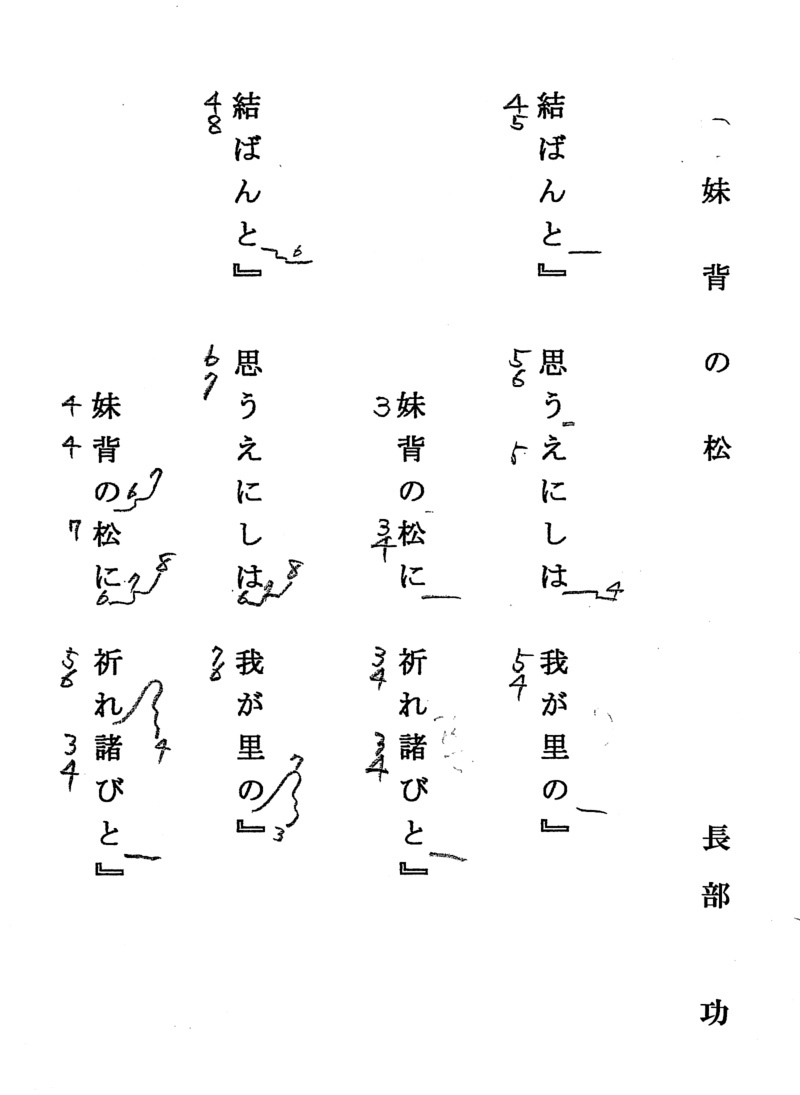 妹背の松　長部　功
結ばんと』　思うえにしは　我が里の』
妹背の松に　祈れ諸びと』
結ばんと』　思うえにしは　我が里の』
妹背の松に　祈れ諸びと』
45
56
5
4
54
3
34
34
34
48
6
67
678
76
7
3
4
4
67
7
678
56
4
34